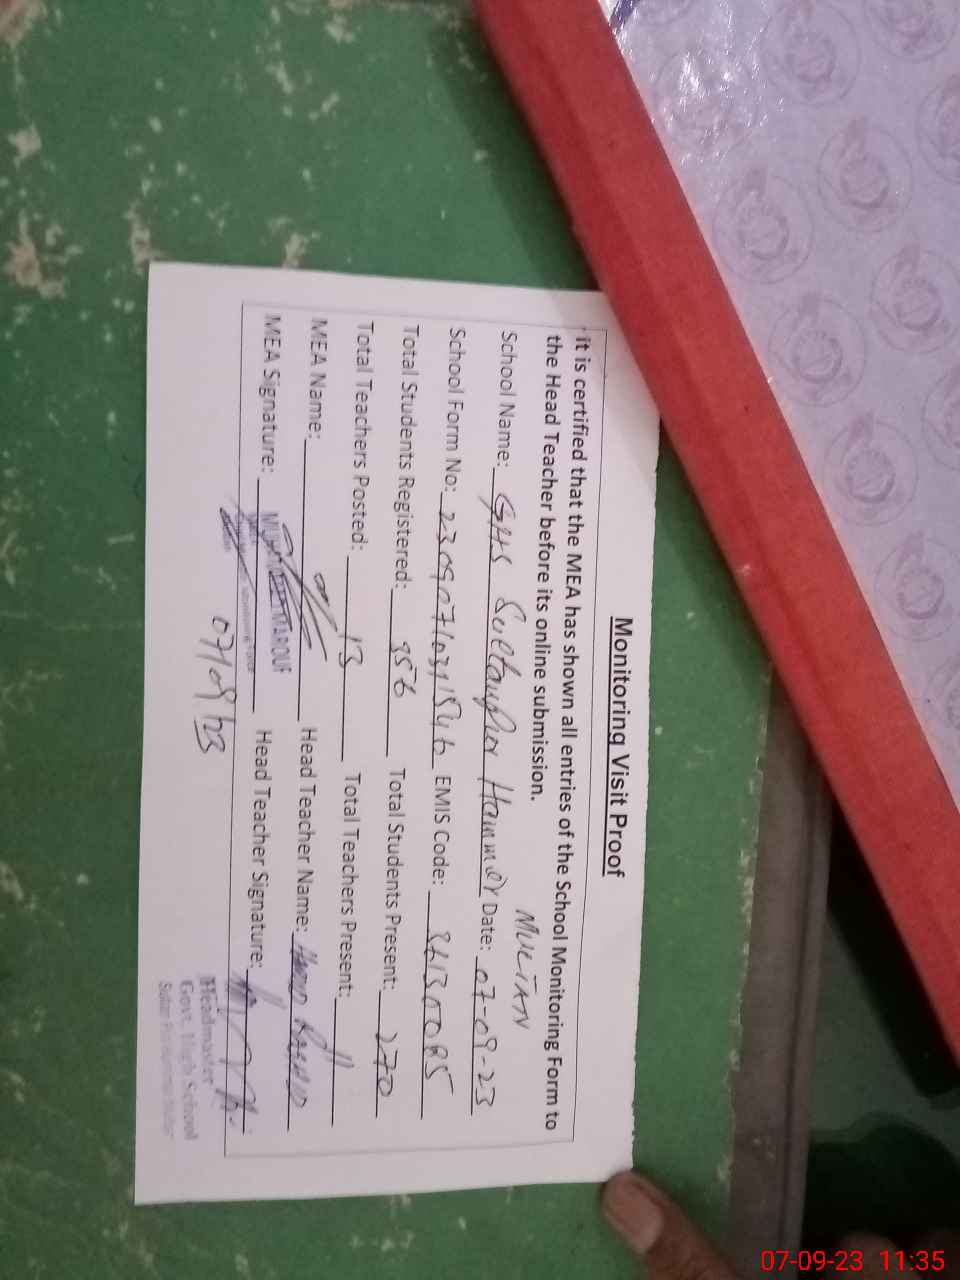 Monitoring Visit Proof
it is certified that the MEA has shown all entries of the School Monitoring Form to
the Head Teacher before its online submission.
MULTAN
School Name: GHS Sultanpur Hammer Date: 07-09-23
School Form No: EMIS Code:
Total Students Registered: Total Students Present: 270
Total Teachers Posted: 13 Total Teachers Present: 11
MEA Name: Head Teacher Name:
MEA Signature: Head Teacher Signature:
07/09/23
Headmaster
Govt. High School
07-09-23 11:35